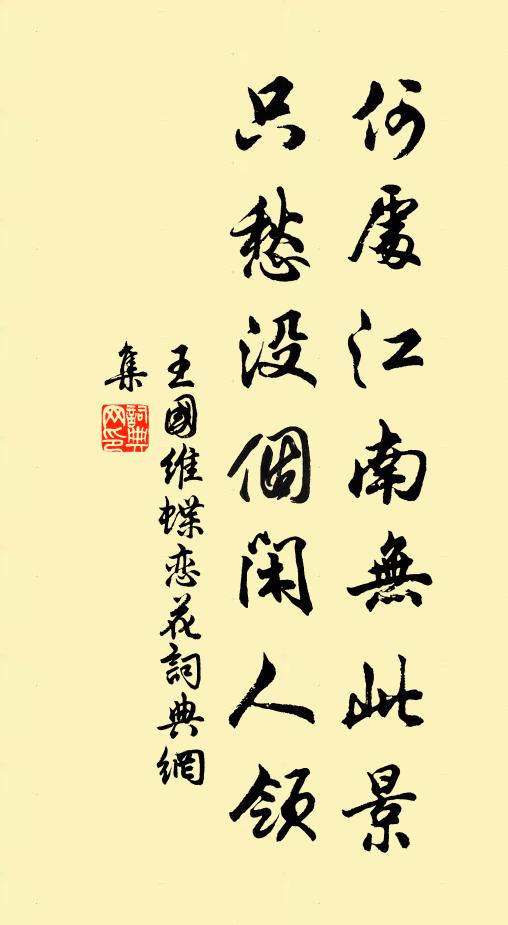 何處江南無此景
只愁没個閑人領
王國維蝶恋花詞典網
集
詞典網印